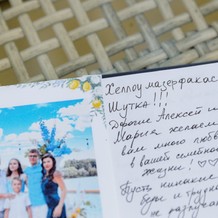 Хеллоу матерфакас
Шутка!!!
Дорогие Алексей и
Мария желаем
вам много любви
в вашей семейной
жизни! ♡♡
Пусть никакие
беры и трудно
не разлучат